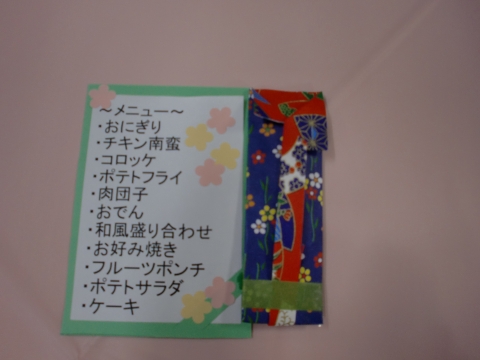 ～メニュー～
・おにぎり
・チキン南蛮
・コロッケ
・ポテトフライ
・肉団子
・おでん
・和風盛り合わせ
・お好み焼き
・フルーツポンチ
・ポテトサラダ
・ケーキ